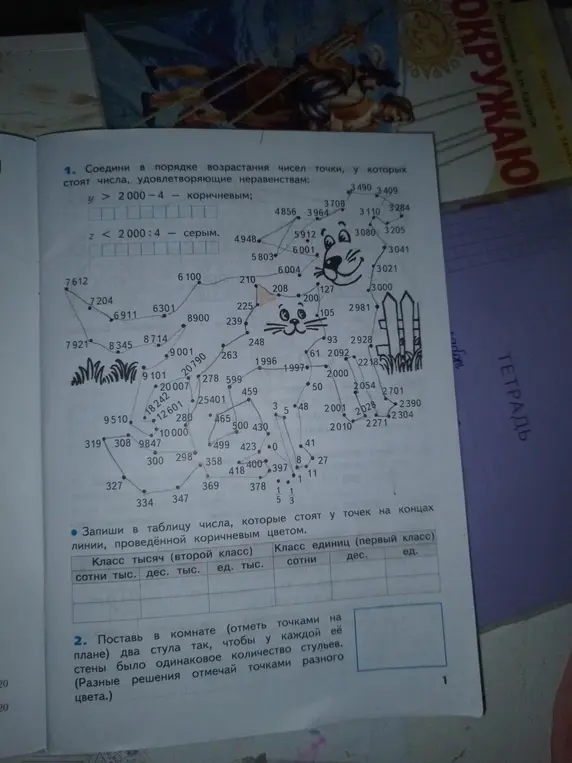 ОКРУЖАЮ
ТЕТРАДЬ
1. Соедини в порядке возрастания чисел точки, у которых
стоят числа, удовлетворяющие неравенствам:
y > 2 000 – 4 — коричневым;
z < 2 000 : 4 — серым.
3 490 3 409
3 708 3 284
4 856 3 964 3 110
3 080 3 205
4 948 5 912
5 803 6 001 3 041
6 004 3 021
7 612 6 100 210 208 127 3 000
7 204 200
6 911 6 301 225 105 2 981
8 900 239
7 921 8 345 8 714 248 93 2 928
9 001 263 61 2 092 2 218
9 101 20 790 1 996 1 997 2 000
20 007 278 599 50 2 054 2 701
18 242 25 401 459 3 5 48 2 001 2 026 2 390
9 510 12 601 280 465 2 010 2 271 2 304
10 000 500 430
319 308 9 847 499 423 0 41
300 298 358 418 400 397 8 27
11
327 369 378 1 1
334 347 5 3
• Запиши в таблицу числа, которые стоят у точек на концах
линии, проведённой коричневым цветом.
Класс тысяч (второй класс) Класс единиц (первый класс)
сотни тыс. дес. тыс. ед. тыс. сотни дес. ед.
2. Поставь в комнате (отметь точками на
плане) два стула так, чтобы у каждой её
стены было одинаковое количество стульев.
(Разные решения отмечай точками разного
цвета.)
1
20
20